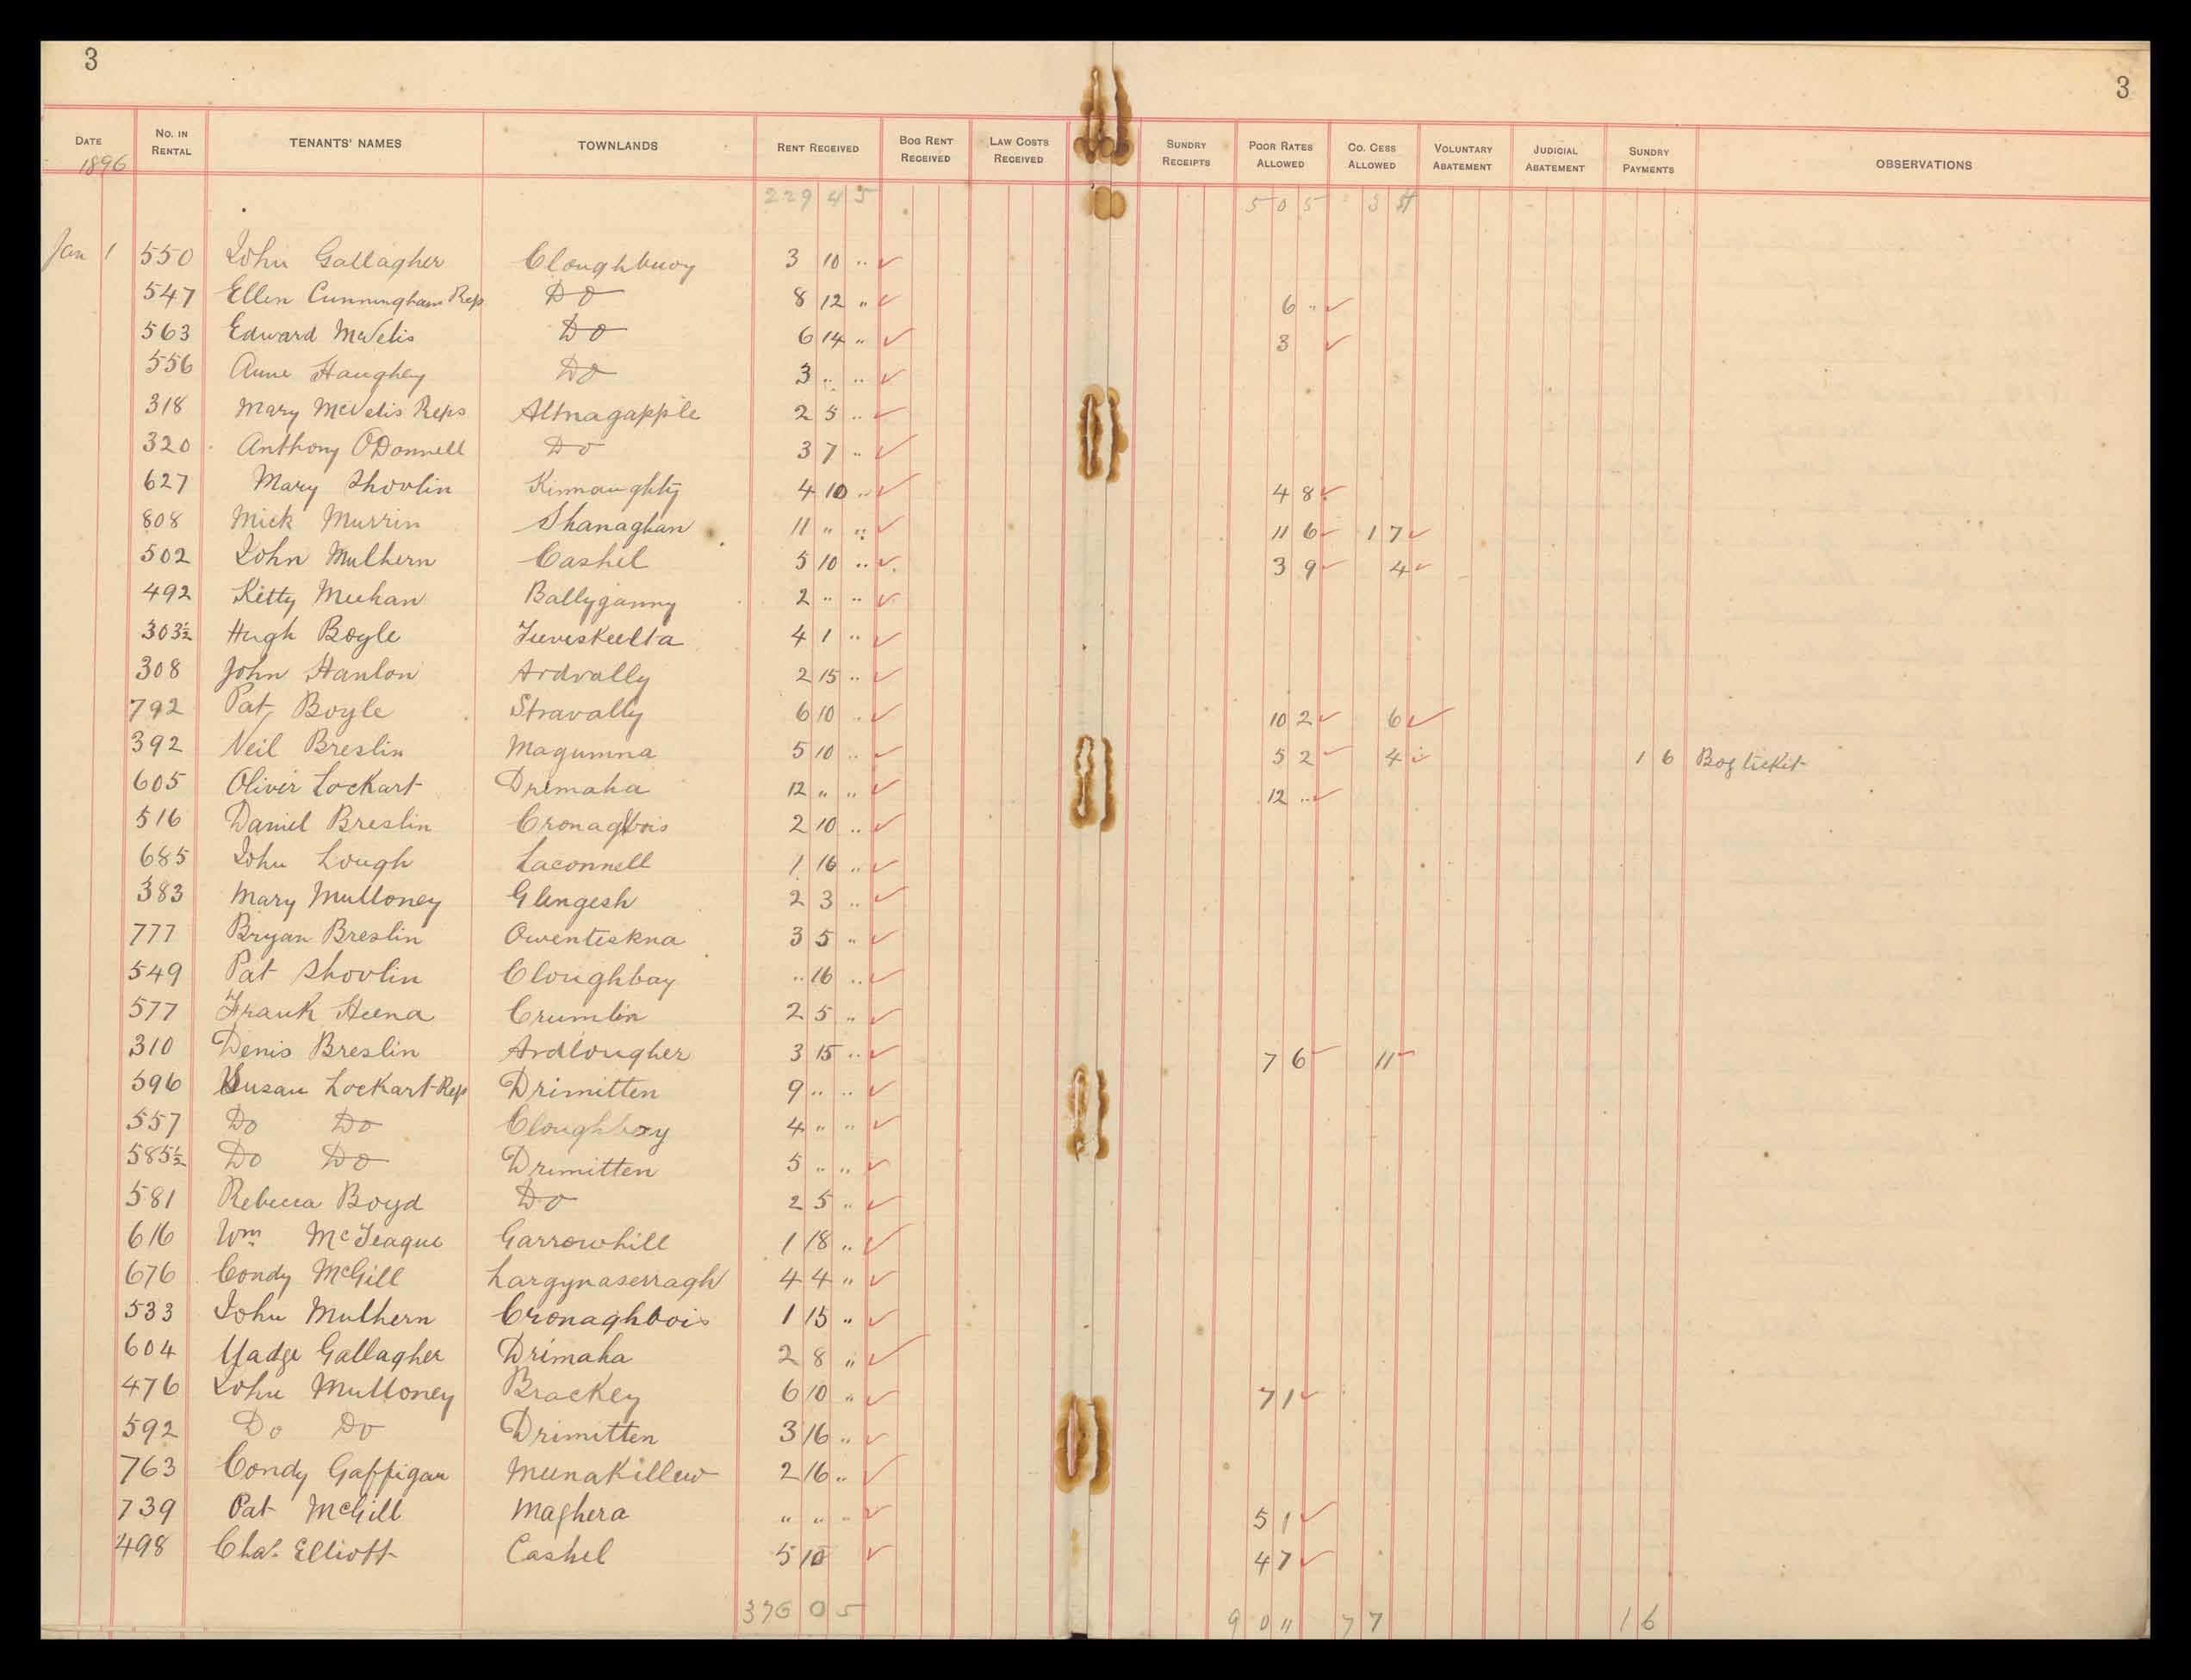 3 3
DATE No. IN RENTAL TENANTS' NAMES TOWNLANDS RENT RECEIVED BOG RENT RECEIVED LAW COSTS RECEIVED SUNDRY RECEIPTS POOR RATES ALLOWED CO. CESS ALLOWED VOLUNTARY ABATEMENT JUDICIAL ABATEMENT SUNDRY PAYMENTS OBSERVATIONS
1896
229 4 5 5 0 5 3
Jan 1 550 John Gallagher Cloughbuoy 3 10 ..
547 Ellen Cunningham Reps Do 8 12 " 6 ..
563 Edward McVelis Do 6 14 " 3
556 Anne Haughey Do 3 .. ..
318 Mary McVelis Reps Altnagapple 2 5 ..
320 Anthony O'Donnell Do 3 7 ..
627 Mary Shovlin Kinnaughty 4 10 .. 4 8
808 Mick Murrin Shanaghan 11 " .. 11 6 1 7
502 John Mulhern Cashel 5 10 .. 3 9 4
492 Kitty Meehan Ballyganny 2 .. ..
303½ Hugh Boyle 4 1 ..
308 John Hanlon Ardvally 2 15 ..
792 Pat, Boyle Stravally 6 10 .. 10 2 6
392 Neil Breslin Magumna 5 10 .. 5 2 4 1 6 Bog ticket
605 Oliver Lockart Drimaha 12 " " 12 ..
516 Daniel Breslin Cronaghbois 2 10 ..
685 John Lough Laconnell 1 16 ..
383 Mary Mulloney Glengesh 2 3 ..
777 Bryan Breslin Owenteskna 3 5 "
549 Pat Shovlin Cloughbay .. 16 ..
577 Frank Heena Crumlin 2 5 "
310 Denis Breslin Ardlougher 3 15 .. 7 6 11
596 Susan Lockart Reps Drimitten 9 .. ..
557 Do Do Cloughboy 4 " "
585½ Do Do Drimitten 5 .. ..
581 Rebecca Boyd Do 2 5 "
616 Wm McTeague Garrowhill 1 18 ..
676 Condy McGill Largynaserragh 4 4 "
533 John Mulhern Cronaghbois 1 15 "
604 Madge Gallagher Drimaha 2 8 "
476 John Mulloney Brackey 6 10 " 7 1
592 Do Do Drimitten 3 16 ..
763 Condy Gaffigan Meenakillew 2 16 ..
739 Pat McGill Maghera " " .. 5 1
498 Chas. Elliott Cashel 5 10 4 7
376 0 5 9 0 11 7 7 1 6